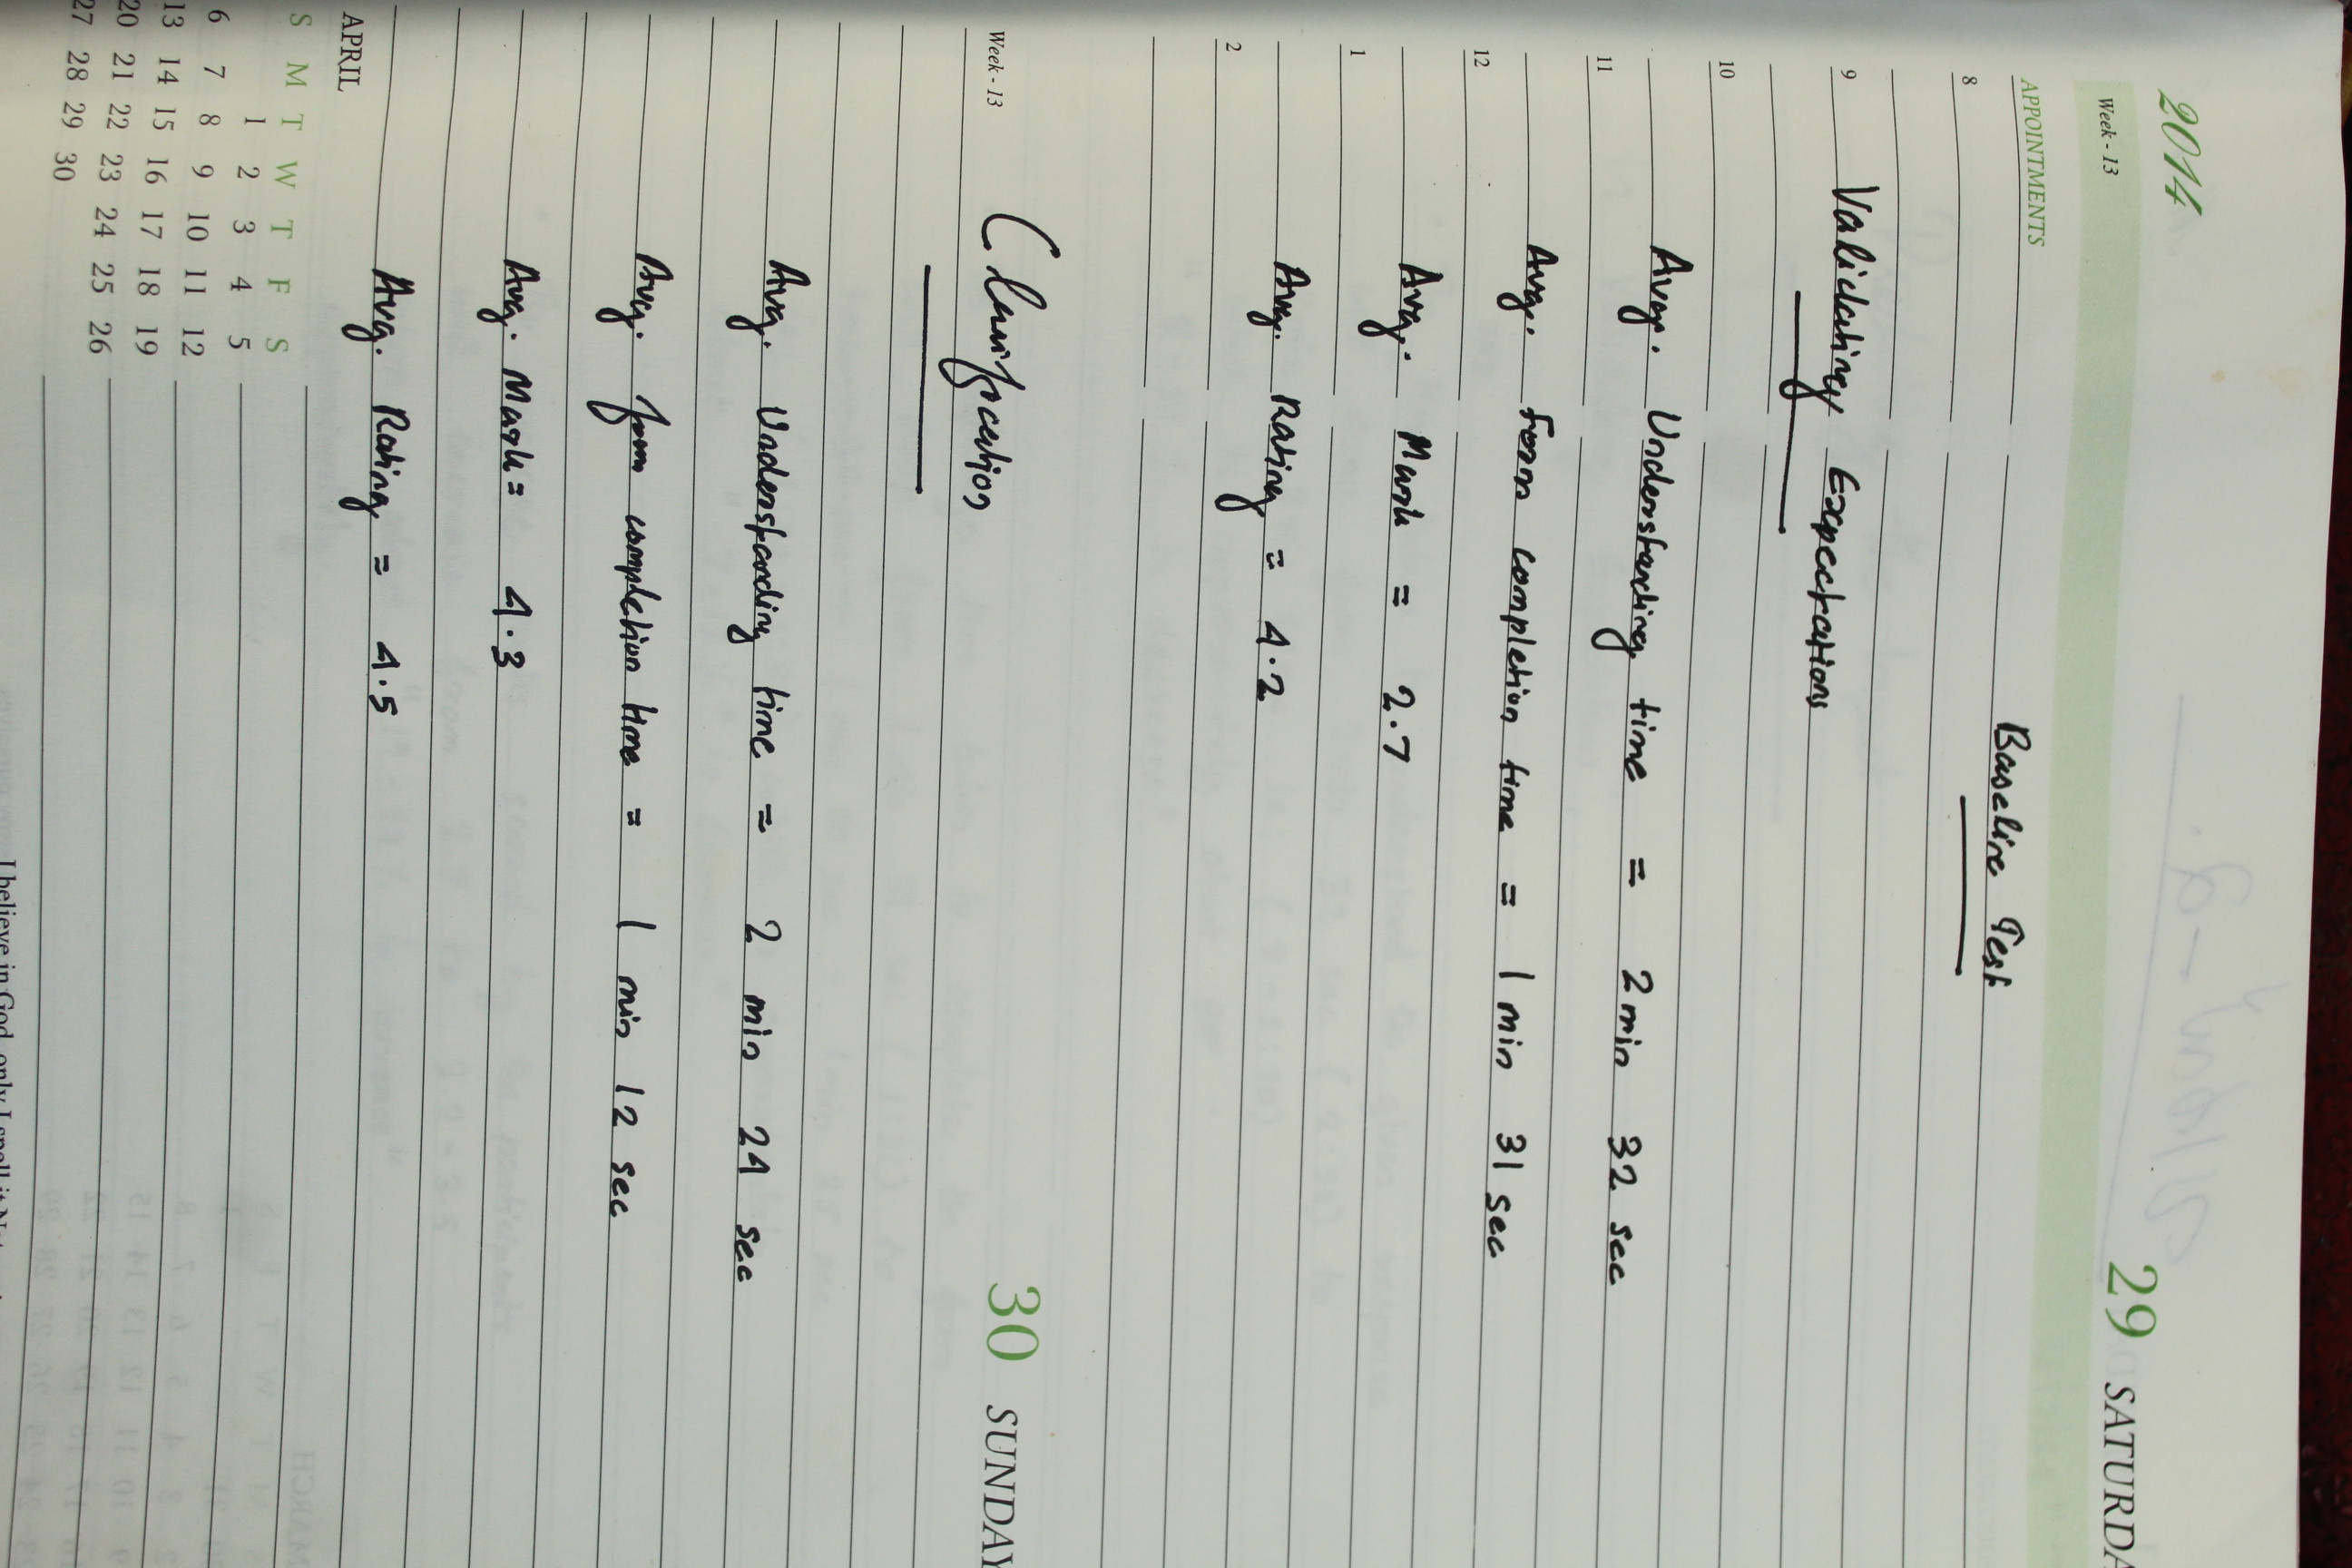 2014
Week - 13
29 SATURDA
APPOINTMENTS
Baseline Test
8
9 Validating Expectations
10
Avg. Understanding time = 2 min 32 sec
11
Avg. Form completion time = 1 min 31 sec
12
Avg. Mark = 2.7
1
Avg. Rating = 4.2
2
Week - 13
30 SUNDAY
Clarification
Avg. Understanding time = 2 min 24 sec
Avg. form completion time = 1 min 12 sec
Avg. Mark = 4.3
Avg. Rating = 4.5
APRIL
S M T W T F S
1 2 3 4 5
6 7 8 9 10 11 12
13 14 15 16 17 18 19
20 21 22 23 24 25 26
27 28 29 30
I believe in God, only I spell it